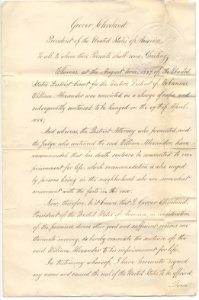 Grover Cleveland,
President of the United States of America,
To all to whom these Presents shall come, Greeting:
Whereas, at the August term, 1887, of the United
States District Court for the Western District of Arkansas
William Alexander was convicted on a charge of rape and
subsequently sentenced to be hanged on the 27th of April,
1888;
And whereas, the District Attorney who prosecuted and
the Judge who sentenced the said William Alexander have
recommended that his death sentence be committed to im-
prisonment for life, which recommendation is also urged
by persons living in the neighborhood who are somewhat
conversant with the facts in the case:
Now, therefore, be it known, that I, Grover Cleveland,
President of the United States of America, in consideration
of the premises, divers other good and sufficient reasons me
thereunto moving, do hereby commute the sentence of the said
William Alexander to the imprisonment for life.
In testimony whereof, I have hereunto signed
my name and caused the seal of the United States to be affixed.
Done